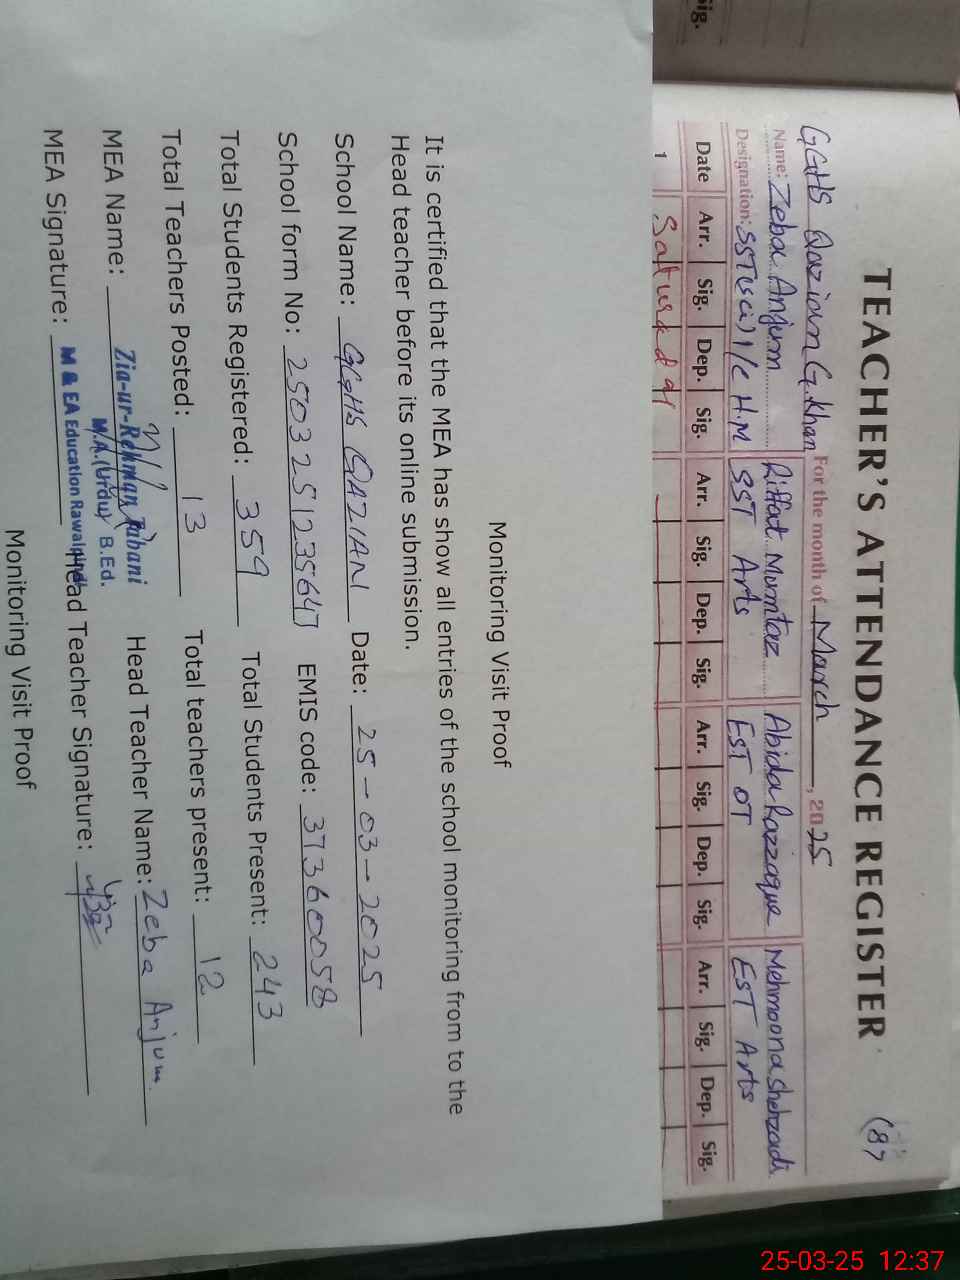 TEACHER'S ATTENDANCE REGISTER (87
GGHS Qazian G.Khan For the month of March, 2025
Name: Zeba Anjum Riffat Mumtaz Abida Razzaque Mehmoona shehzadi
Designation: SST(sci) I/C H.M SST Arts EST OT EST Arts
Date Arr. Sig. Dep. Sig. Arr. Sig. Dep. Sig. Arr. Sig. Dep. Sig. Arr. Sig. Dep. Sig.
1
Sig.
Monitoring Visit Proof
It is certified that the MEA has show all entries of the school monitoring from to the
Head teacher before its online submission.
School Name: GGHS QAZIAN Date: 25-03-2025
School form No: EMIS code: 37360058
Total Students Registered: 359 Total Students Present: 243
Total Teachers Posted: 13 Total teachers present: 12
MEA Name: Zia-ur-Rehman Rabani Head Teacher Name: Zeba Anjum
M.A.(Urdu) B.Ed.
MEA Signature: M & EA Education Rawalpindi Head Teacher Signature:
Monitoring Visit Proof
25-03-25 12:37